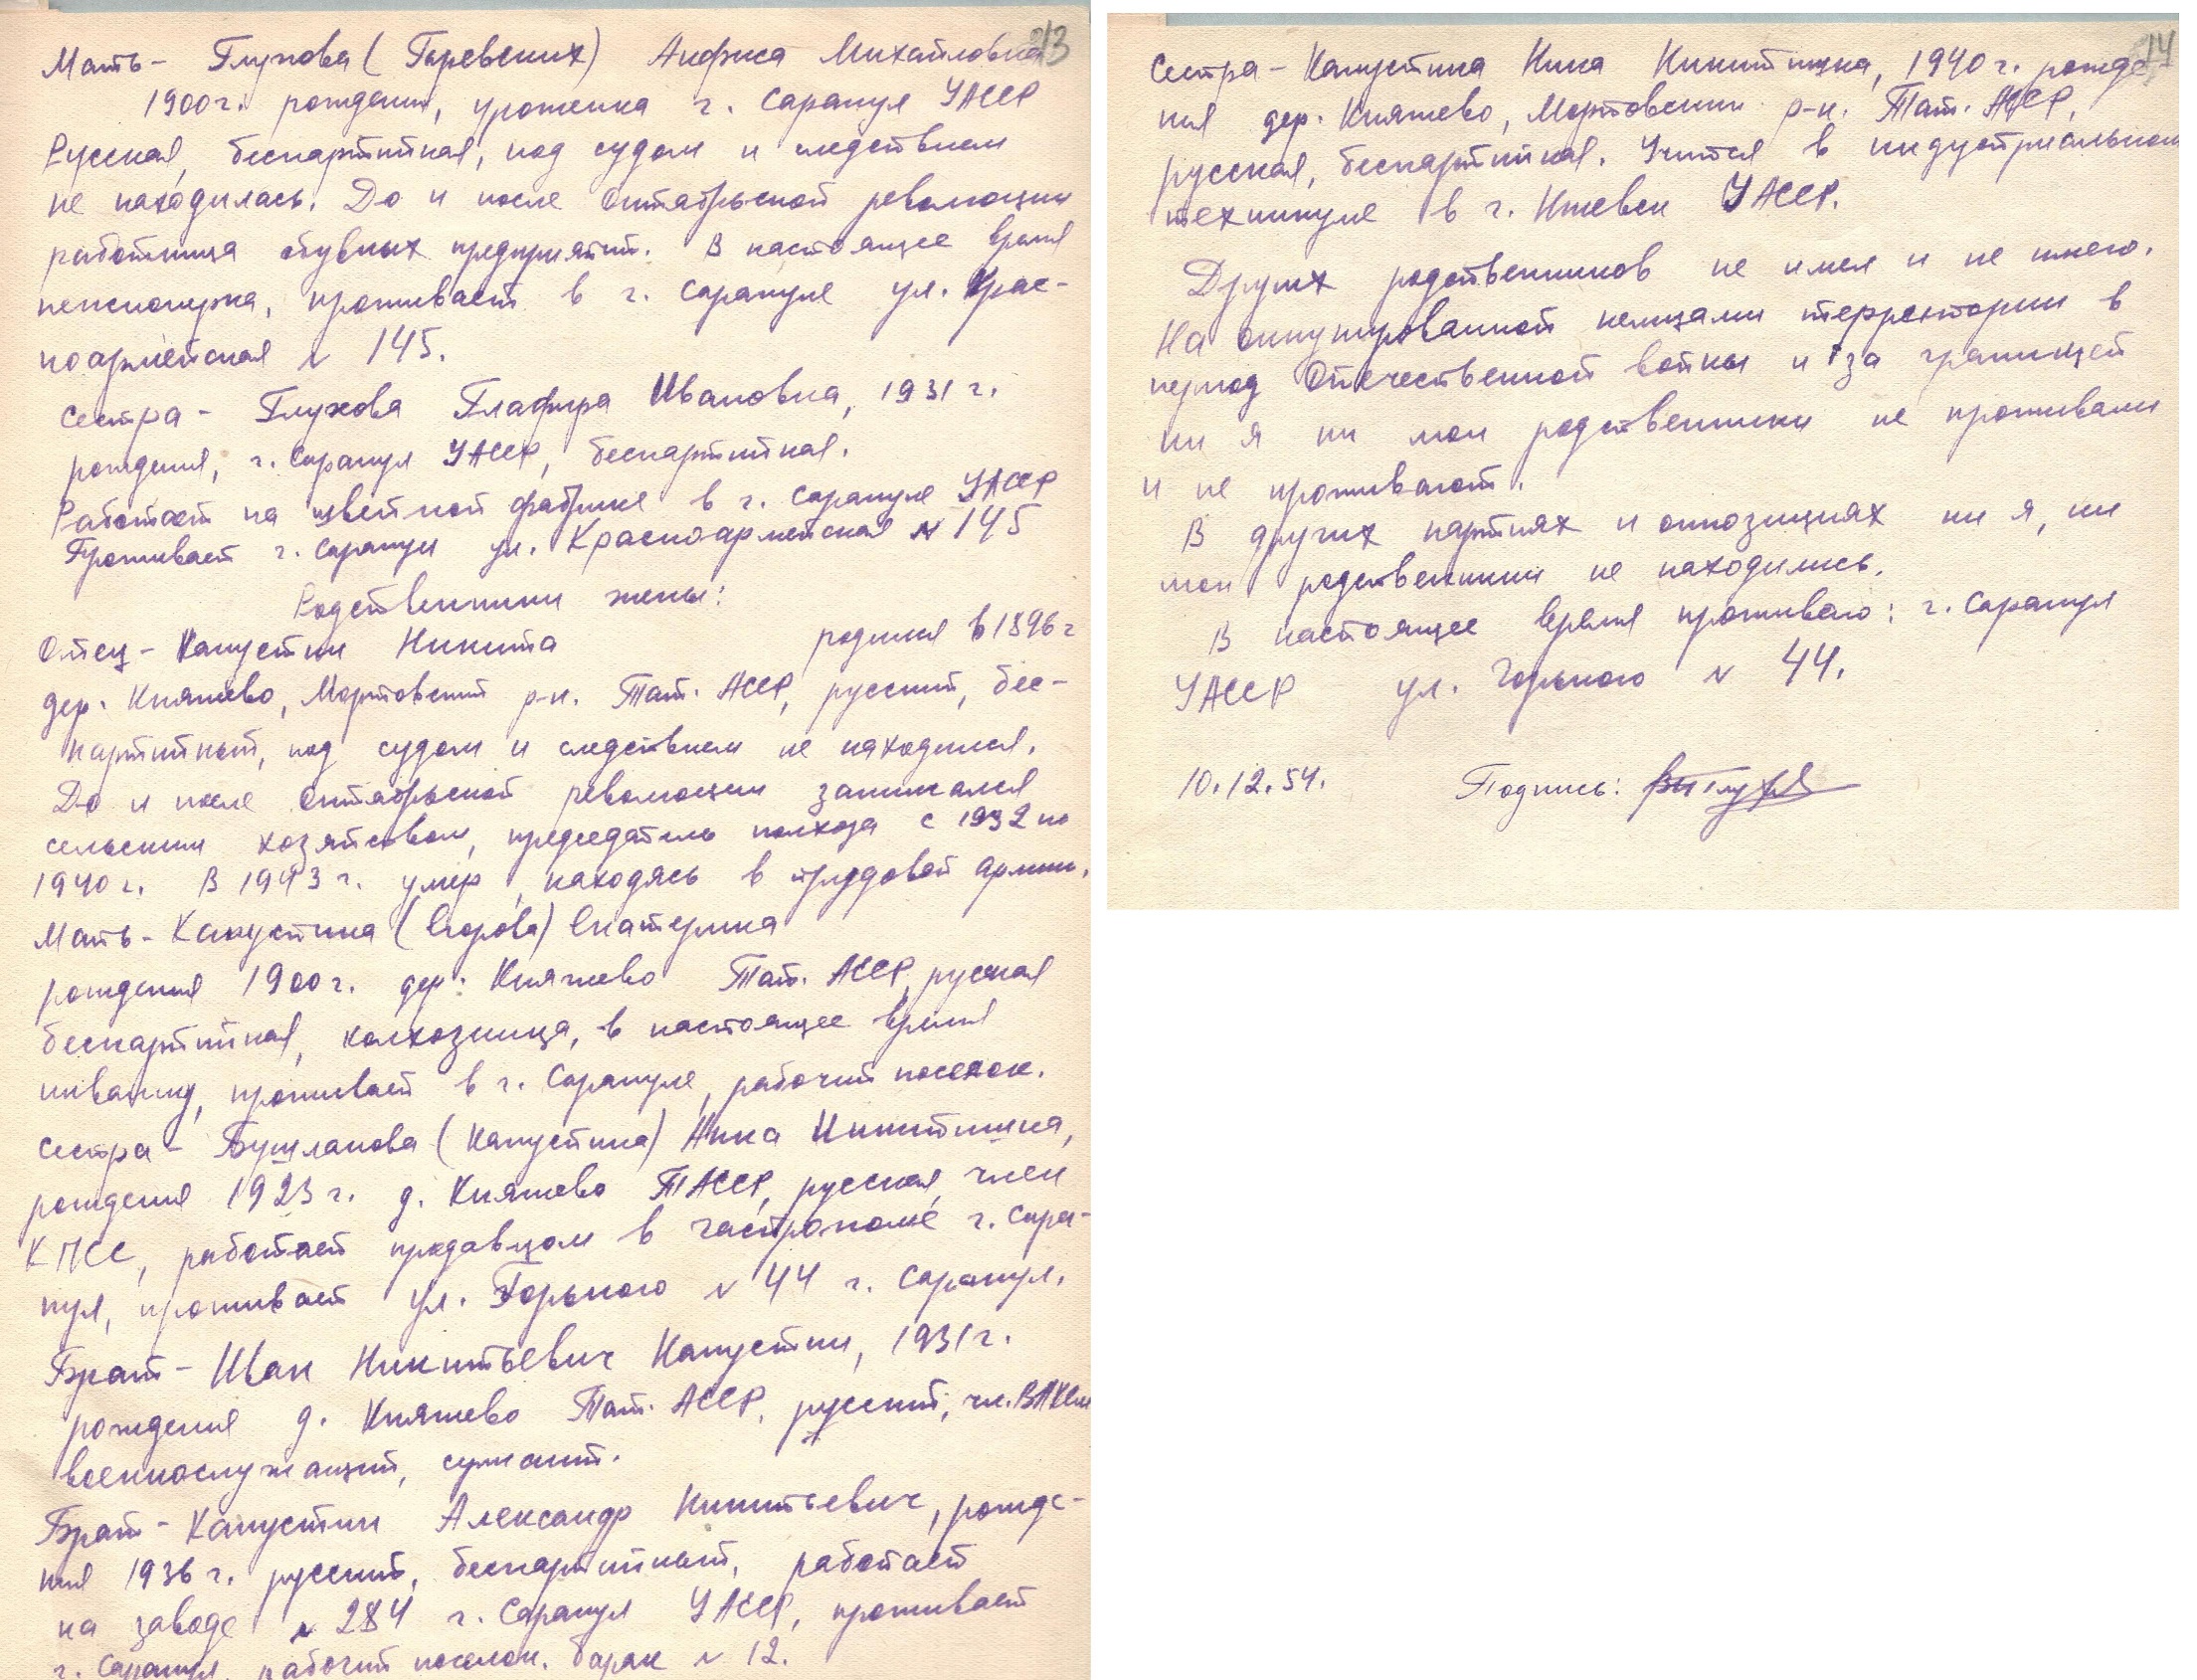 13
Мать - Глухова (Гыревских) Анфиса Михайловна
1900 г. рождения, уроженка г. Сарапул УАССР
Русская, беспартийная, под судом и следствием
не находилась. До и после Октябрьской революции
работница обувных предприятий. В настоящее время
пенсионерка, проживает в г. Сарапуле ул. Крас-
ноармейская № 145.
Сестра - Глухова Глафира Ивановна, 1931 г.
рождения, г. Сарапул УАССР, беспартийная.
Работает на швейной фабрике в г. Сарапуле УАССР
Проживает г. Сарапул ул. Красноармейская № 145
Родственники жены:
Отец - Капустин Никита родился в 1896 г
дер. Княжево, Мортовский р-н. Тат. АССР, русский, бес-
партийный, под судом и следствием не находился.
До и после Октябрьской революции занимался
сельским хозяйством, председатель колхоза с 1932 по
1940 г. В 1943 г. умер, находясь в трудовой армии.
Мать - Капустина (Егорова) Екатерина
рождения 1900 г. дер. Княжево Тат. АССР, русская
беспартийная, колхозница, в настоящее время
инвалид, проживает в г. Сарапуле, рабочий поселок.
Сестра - Бушланова (Капустина) Анна Никитична,
рождения 1923 г. д. Княжево ТАССР, русская, член
КПСС, работает продавцом в гастрономе г. Сара-
пул, проживает ул. Горького № 44 г. Сарапул.
Брат - Иван Никитьевич Капустин, 1931 г.
рождения д. Княжево Тат. АССР, русский, чл. ВЛКСМ
военнослужащий, сержант.
Брат - Капустин Александр Никитьевич, рожде-
ния 1936 г. русский, беспартийный, работает
на заводе № 284 г. Сарапул УАССР, проживает
г. Сарапул, рабочий поселок. барак № 12.
14
Сестра - Капустина Нина Никитична, 1940 г. рожде-
ния дер. Княжево, Мортовский р-н. Тат. АССР,
русская, беспартийная. Учится в индустриальном
техникуме в г. Ижевск УАССР.
Других родственников не имел и не имею.
На оккупированной немцами территории в
период Отечественной войны и за границей
ни я ни мои родственники не проживали
и не проживают.
В других партиях и оппозициях ни я, ни
мои родственники не находились.
В настоящее время проживаю: г. Сарапул
УАССР ул. Горького № 44.
10.12.54. Подпись: